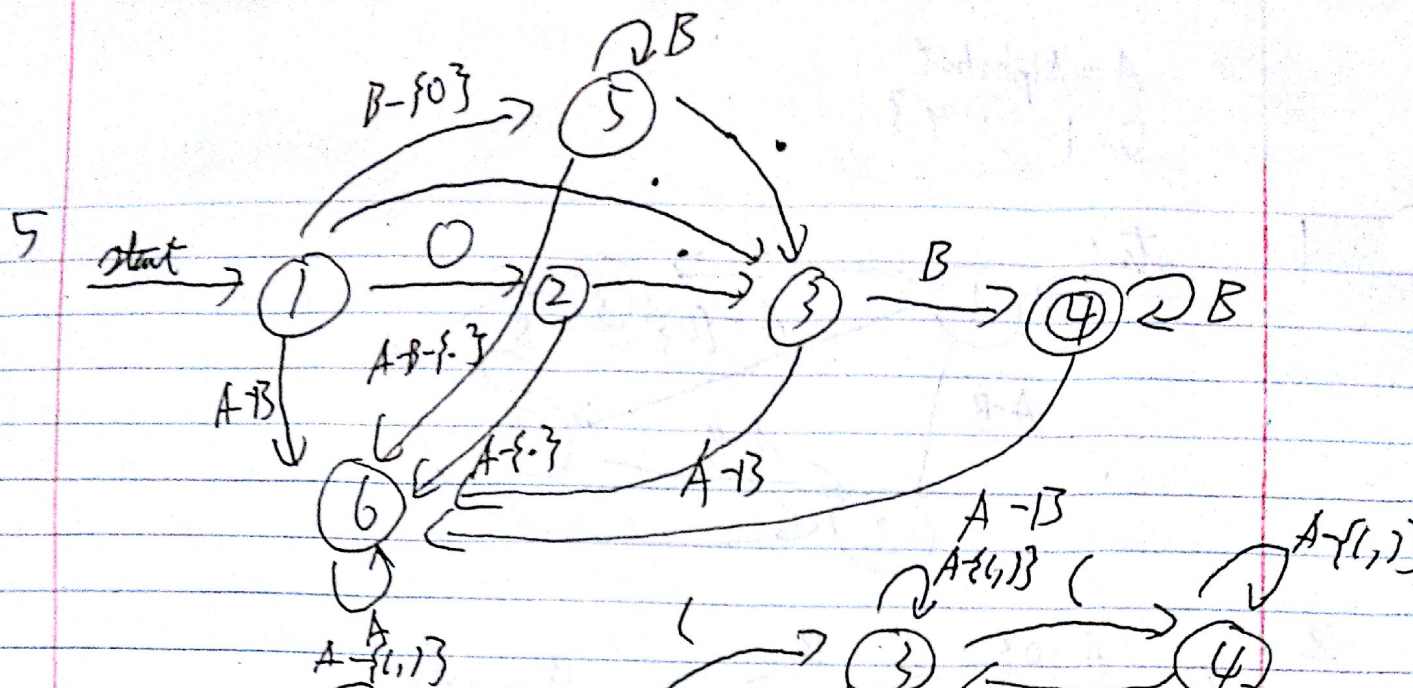 B
B-{0}
5
.
.
5
start
0
.
B
1
2
3
4
B
A-B-{.}
A-B
A-{.}
A-B
6
A-B
A-{(,)}
(
A-{(,)
A
(
A-{(,)}
3
4